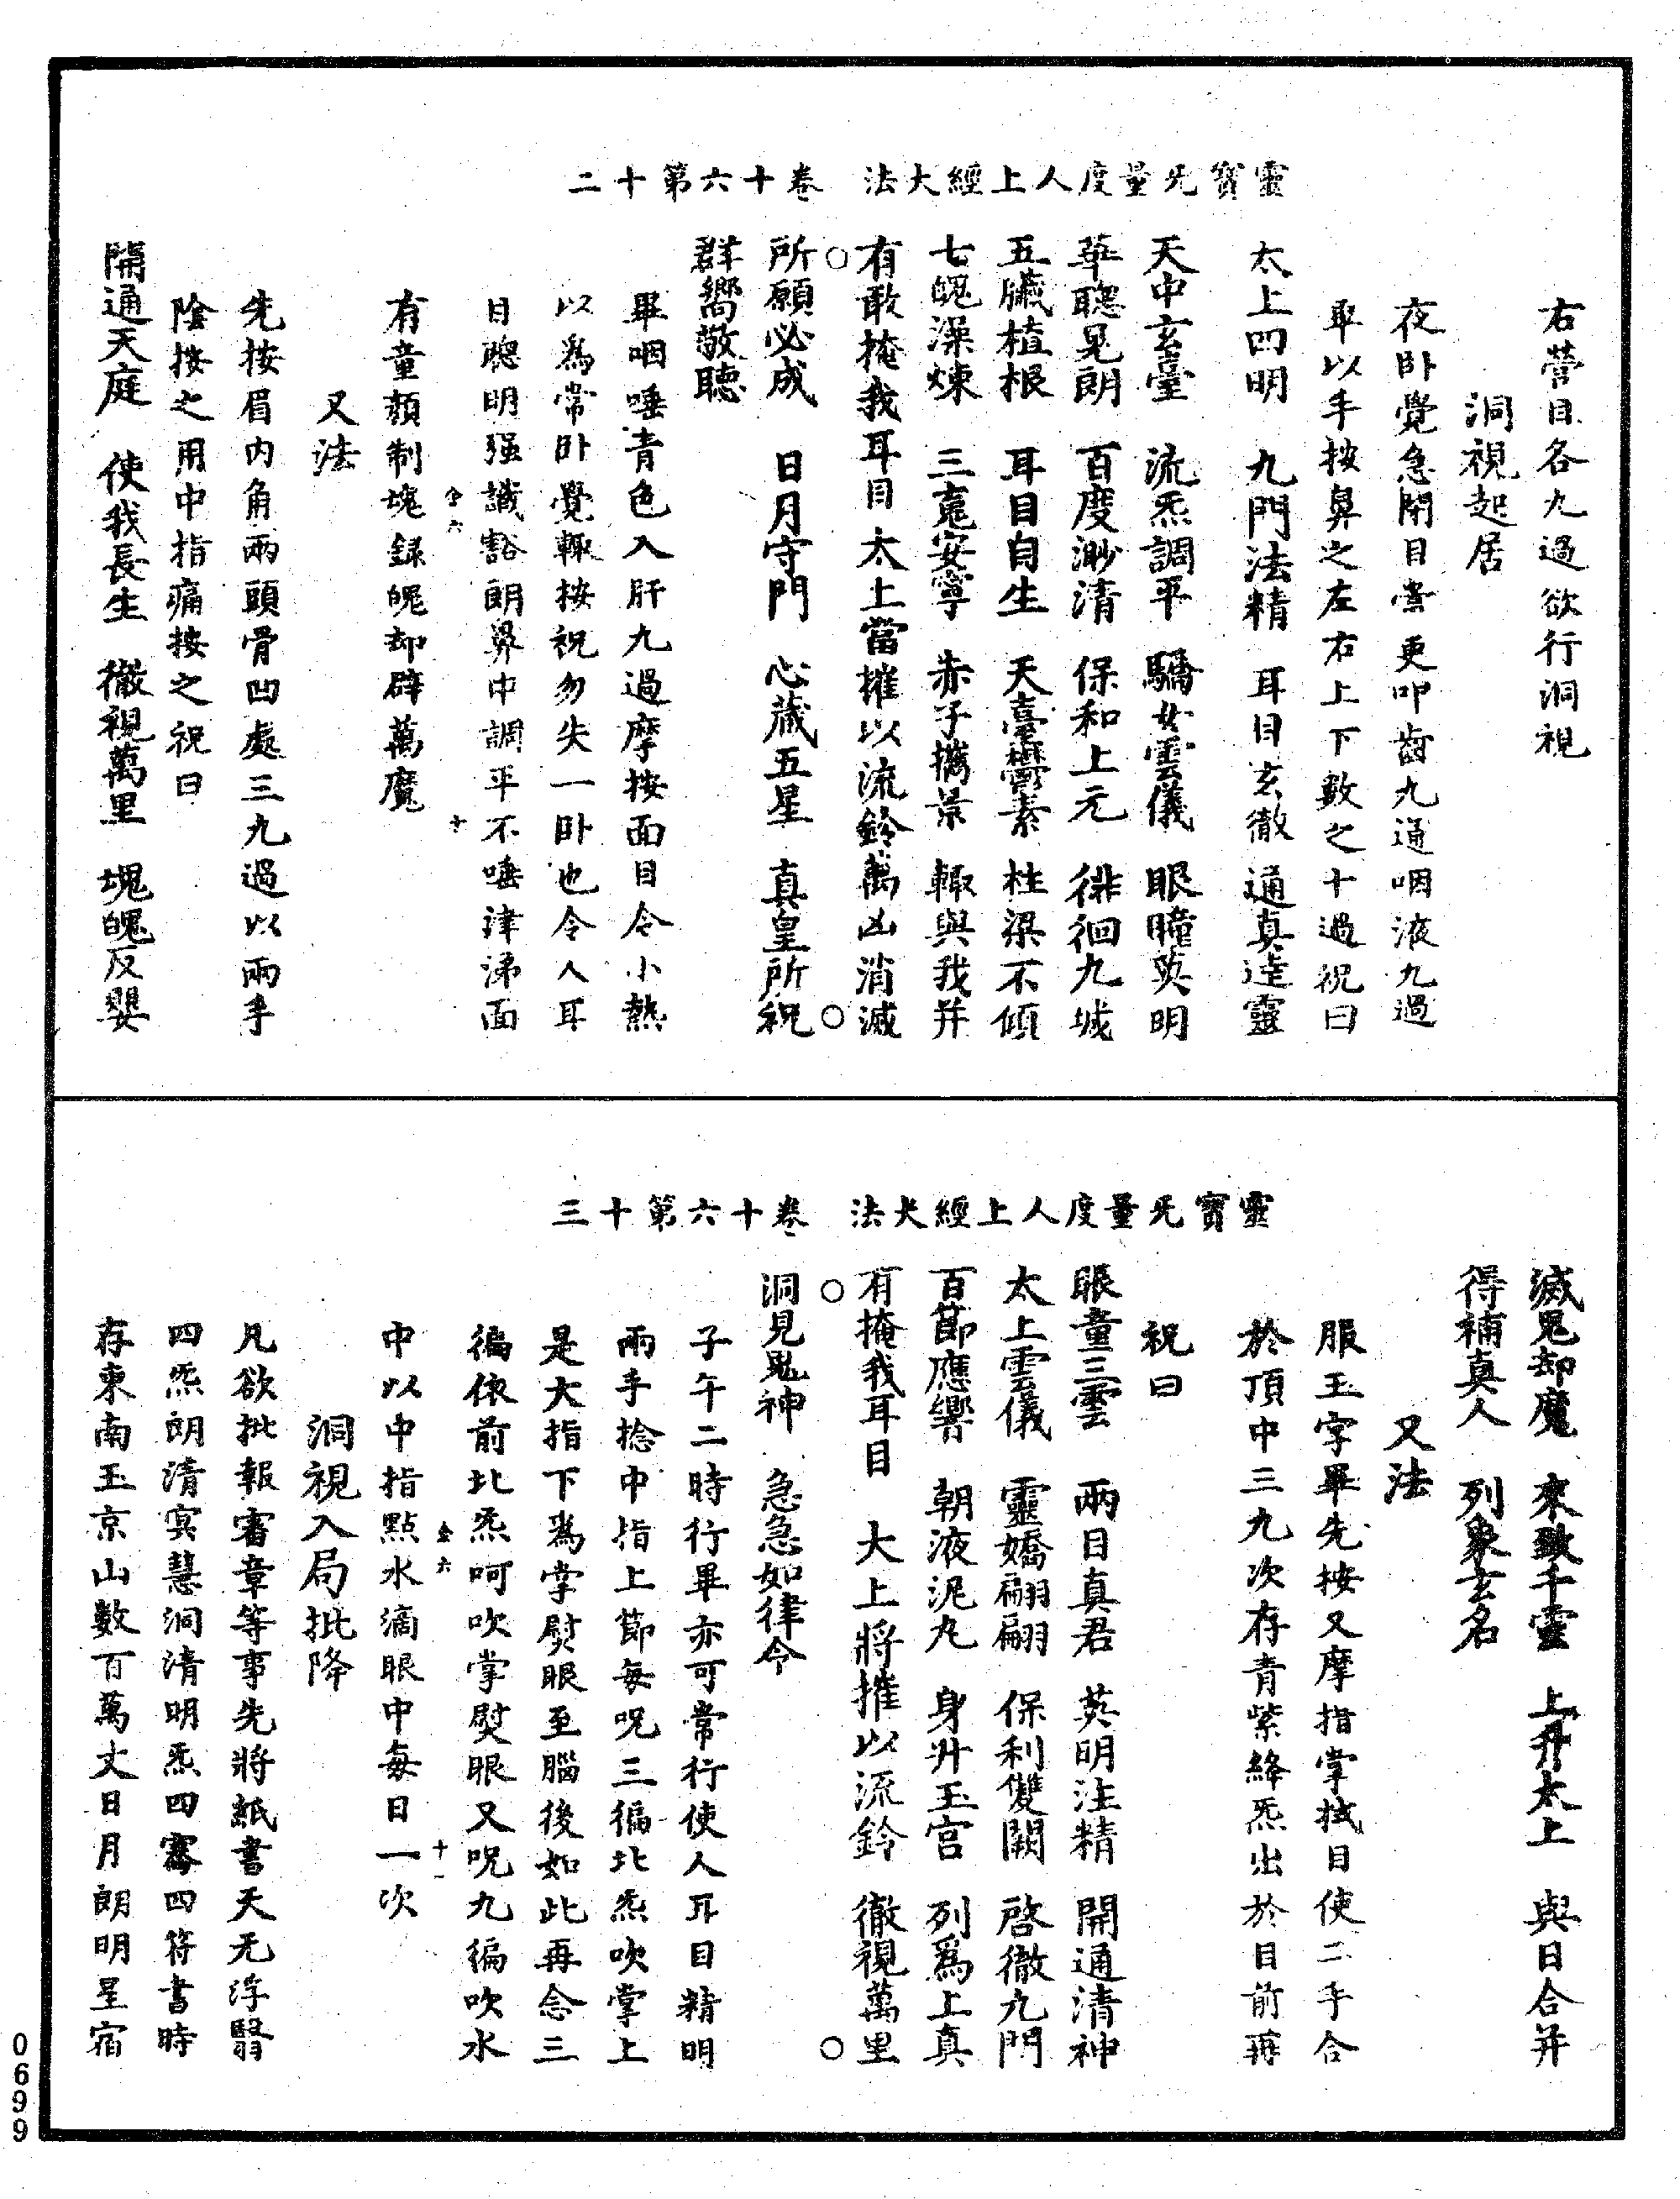 靈寶旡量度人上經大法　卷十六第十二
右營目各九過欲行洞視
洞視起居
夜卧覺急閉目當更叩齒九通咽液九過
取以手按鼻之左右上下數之十過祝曰
太上四明　九門法精　耳目玄徹　通真達靈
天中玄臺　流炁調平　驕女雲儀　眼瞳英明
華聰晃朗　百度渺清　保和上元　徘徊九城
五臟植根　耳目自生　天臺鬱素　柱梁不傾
七魄澡煉　三䰟安寧　赤子攜景　輙與我并
有敢掩我耳目　太上當摧以流鈴　萬凶消滅
所願必成　日月守門　心藏五星　真皇所祝
群嚮敬聽
畢咽唾青色入肝九過摩按面目令小熱
以爲常卧覺輙按祝勿失一卧也令人耳
目聰明强識豁朗鼻中調平不唾津涕面
全六　十
有童顔制䰟録魄却辟萬魔
又法
先按眉内角兩頭骨凹處三九過以兩手
陰按之用中指痛按之祝曰
開通天庭　使我長生　徹視萬里　䰟魄反嬰
靈寶旡量度人上經大法　卷十六第十三
滅鬼却魔　來致千靈　上升太上　與日合并
得補真人　列象玄名
又法
服玉字畢先按又摩指掌拭目使二手合
於頂中三九次存青紫絳炁出於目前再
祝曰
眼童三雲　兩目真君　英明注精　開通清神
太上雲儀　靈嬌翩翩　保利雙闕　啓徹九門
百節應響　朝液泥丸　身升玉宫　列爲上真
有掩我耳目　大上將摧以流鈴　徹視萬里
洞見鬼神　急急如律令
子午二時行畢亦可常行使人耳目精明
兩手捻中指上節每呪三徧北炁吹掌上
是大指下爲掌熨眼至腦後如此再念三
徧依前北炁呵吹掌熨眼又呪九徧吹水
全六　十一
中以中指點水滴眼中每日一次
洞視入局批降
凡欲批報審章等事先將紙書天旡浮翳
四炁朗清寞慧洞清明炁四騫四符書時
存東南玉京山數百萬丈日月朗明星宿
0699